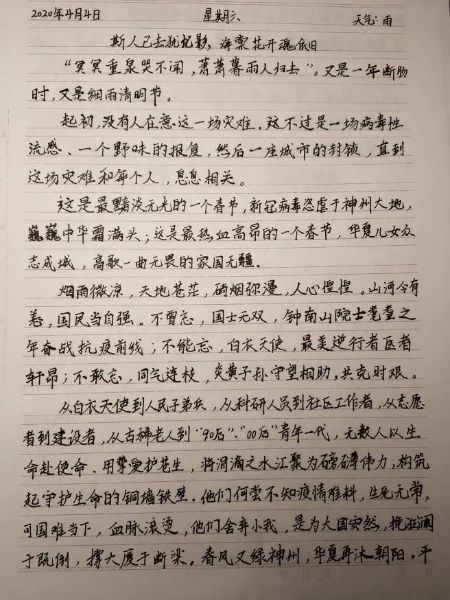 2020年4月4日 星期六 天气:雨
斯人已去犹忆影,海棠花开魂依旧
“冥冥重泉哭不闻,萧萧暮雨人归去”。又是一年断肠
时,又是细雨清明节。
起初,没有人在意这一场灾难。这不过是一场病毒性
流感、一个野味的报复,然后一座城市的封锁,直到
这场灾难和每个人,息息相关。
这是最黯淡无光的一个春节,新冠病毒恣虐于神州大地,
巍巍中华霜满头;这是最热血高昂的一个春节,华夏儿女众
志成城,高歌一曲无畏的家国无疆。
烟雨微凉,天地苍茫,硝烟弥漫,人心惶惶。山河今有
恙,国民当自强。不曾忘,国士无双,钟南山院士耄耋之
年奋战抗疫前线;不能忘,白衣天使,最美逆行者医者
轩昂;不敢忘,同气连枝,炎黄子孙守望相助,共克时艰。
从白衣天使到人民子弟兵,从科研人员到社区工作者,从志愿
者到建设者,从古稀老人到“90后”、“00后”青年一代,无数人以生
命赴使命、用挚爱护苍生,将涓滴之水汇聚为磅礴伟力,构筑
起守护生命的铜墙铁壁。他们何尝不知疫情难料,生死无常,
可国难当下,血脉滚烫,他们舍弃小我,是为大国安然,挽狂澜
于既倒,撑大厦于断梁。春风又绿神州,华夏再沐朝阳。平